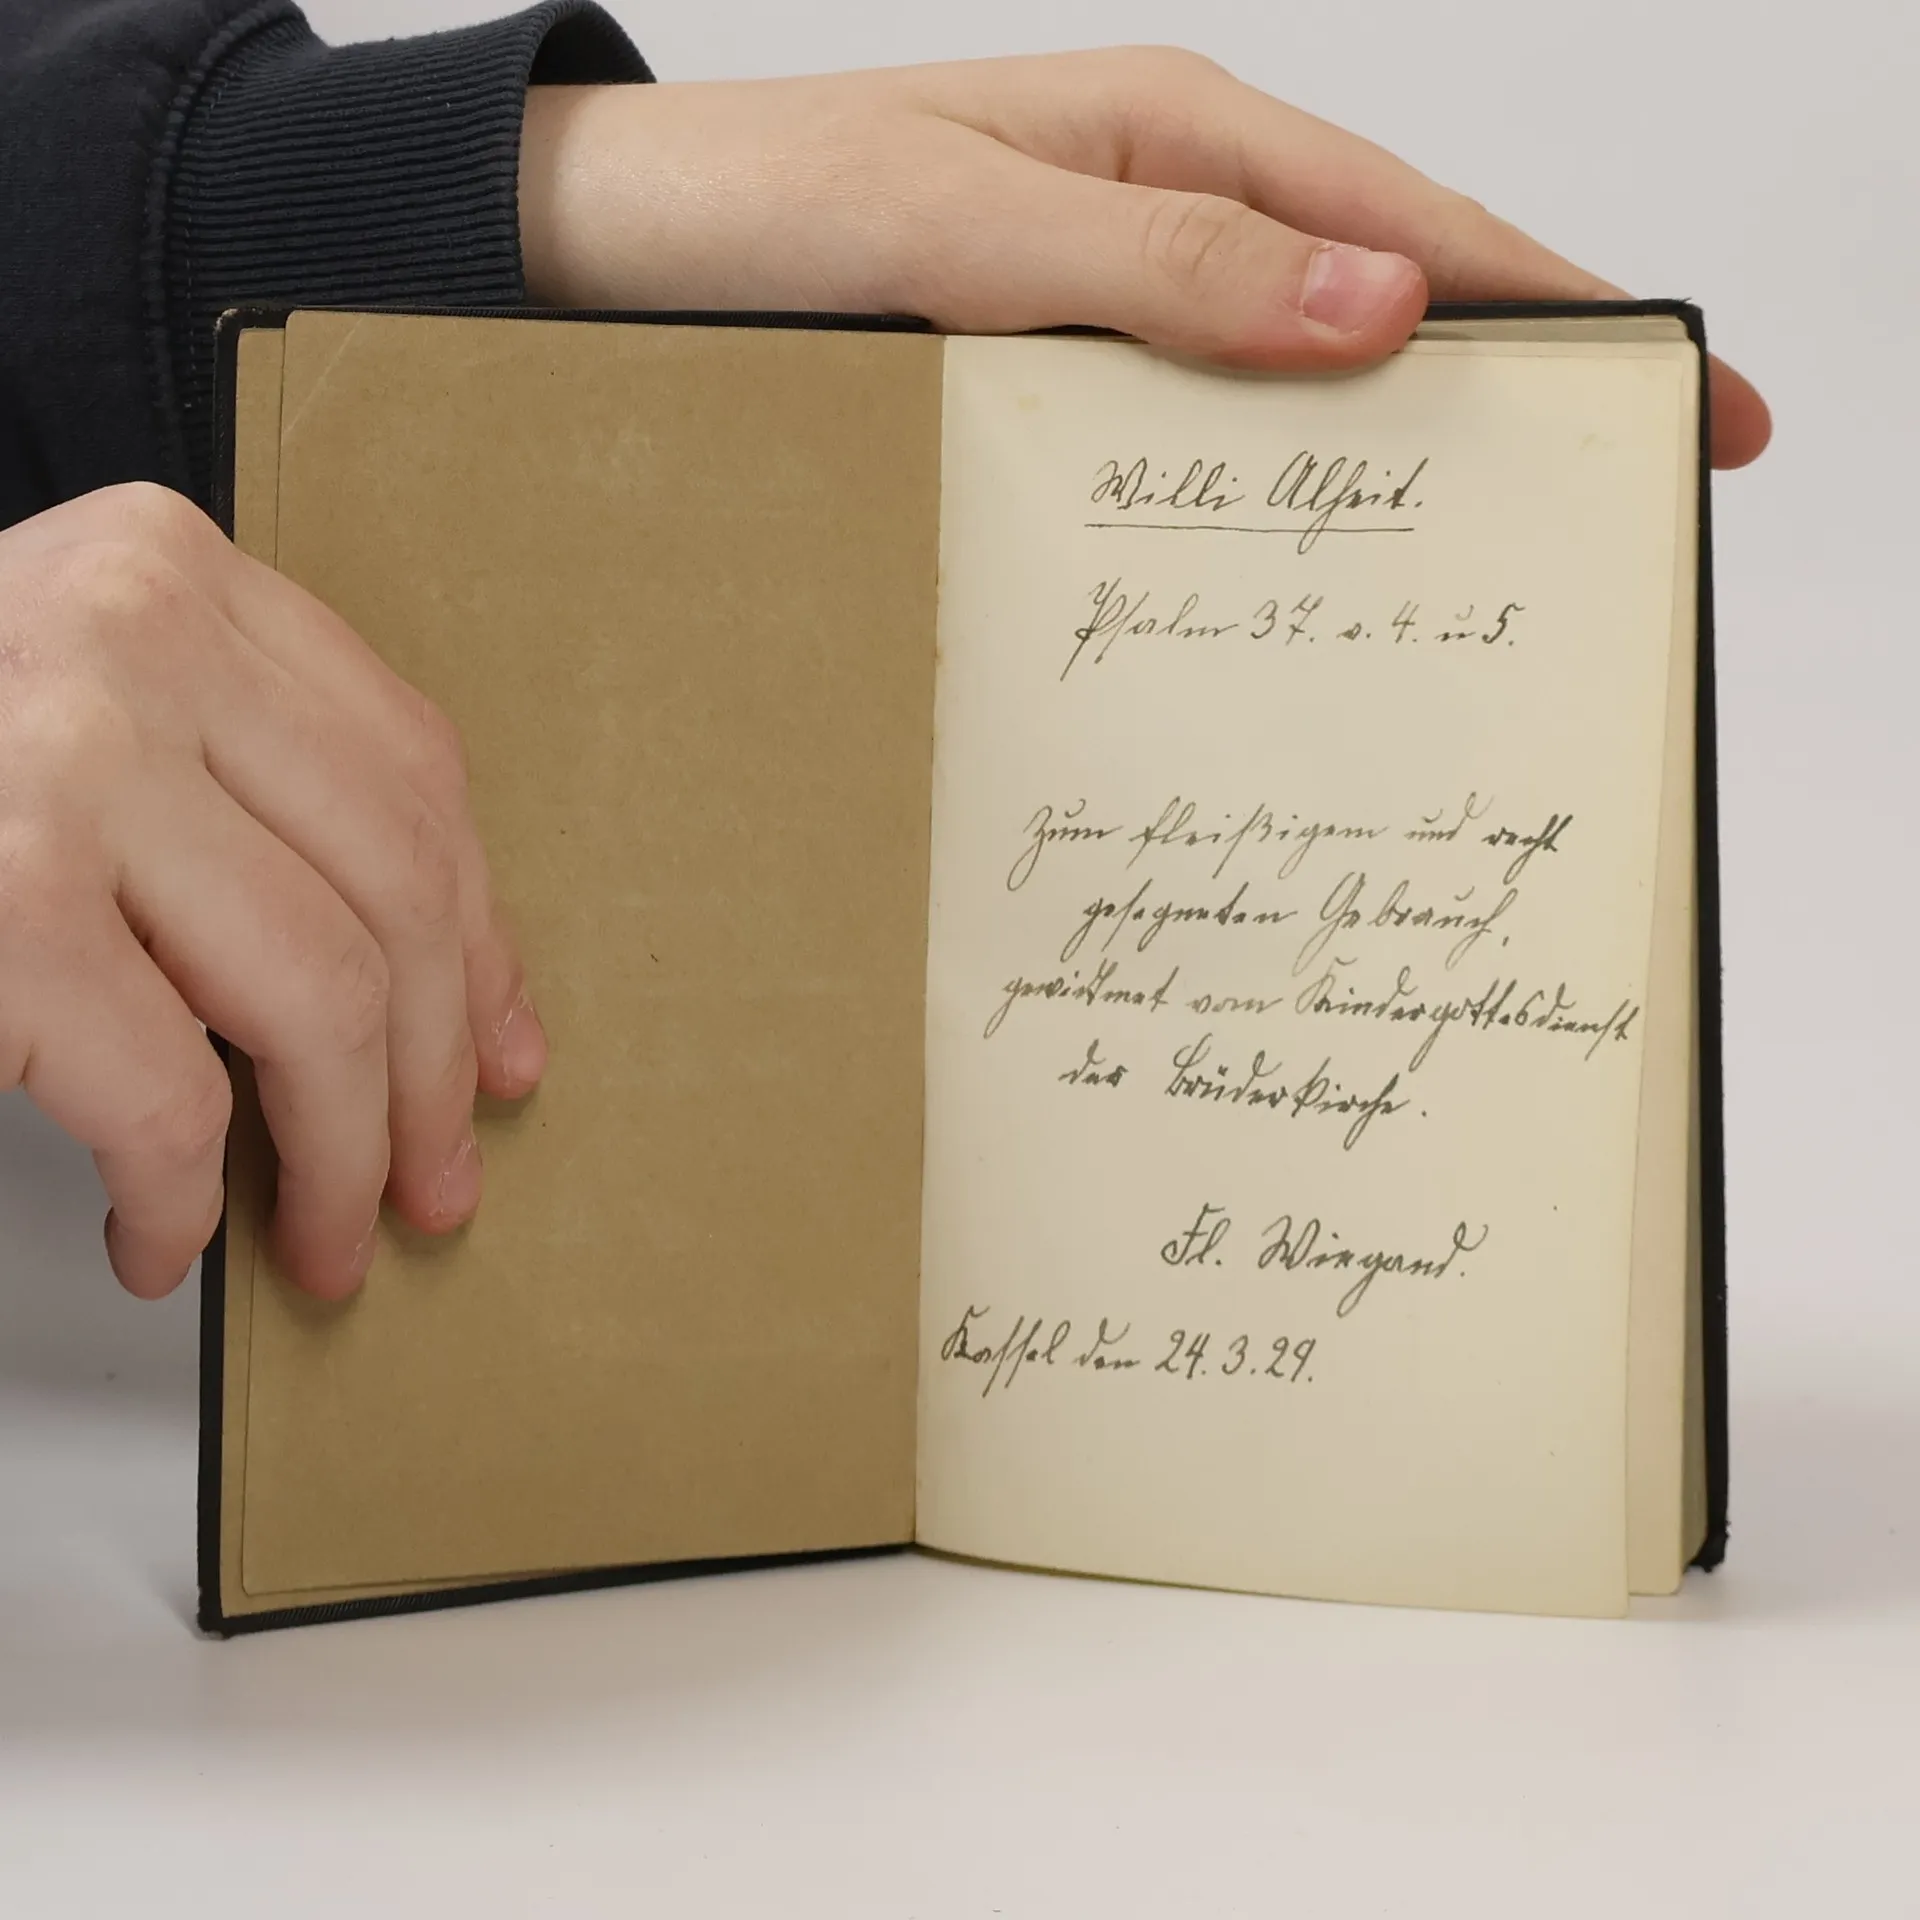 Willi Alheit.
Psalm 37. v. 4. u 5.
Zum fleißigem und recht
gesegneten Gebrauch,
gewidtmet vom Kindergottesdienst
der Brüderkirche.
Fl. Wiegand.
Kassel den 24.3.29.